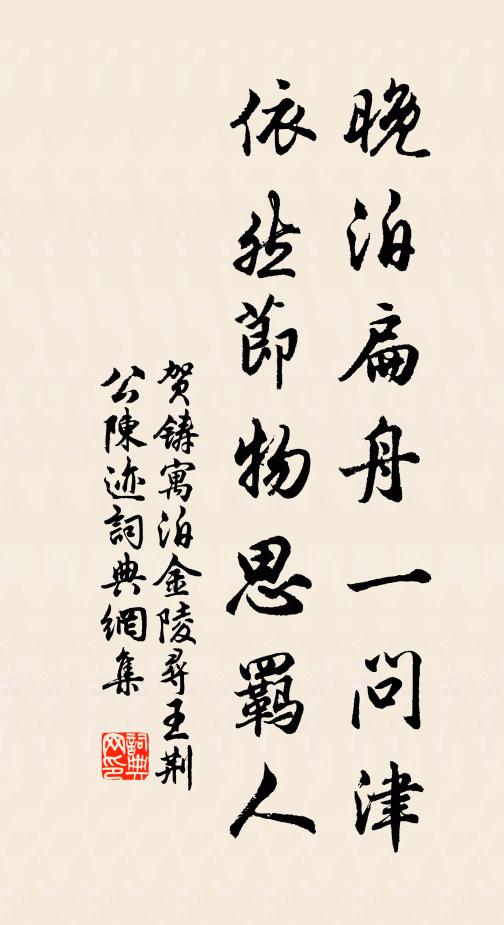 晚泊扁舟一問津
依然節物思羈人
贺鑄寓泊金陵尋王荆
公陳迹詞典網集
詞典網印